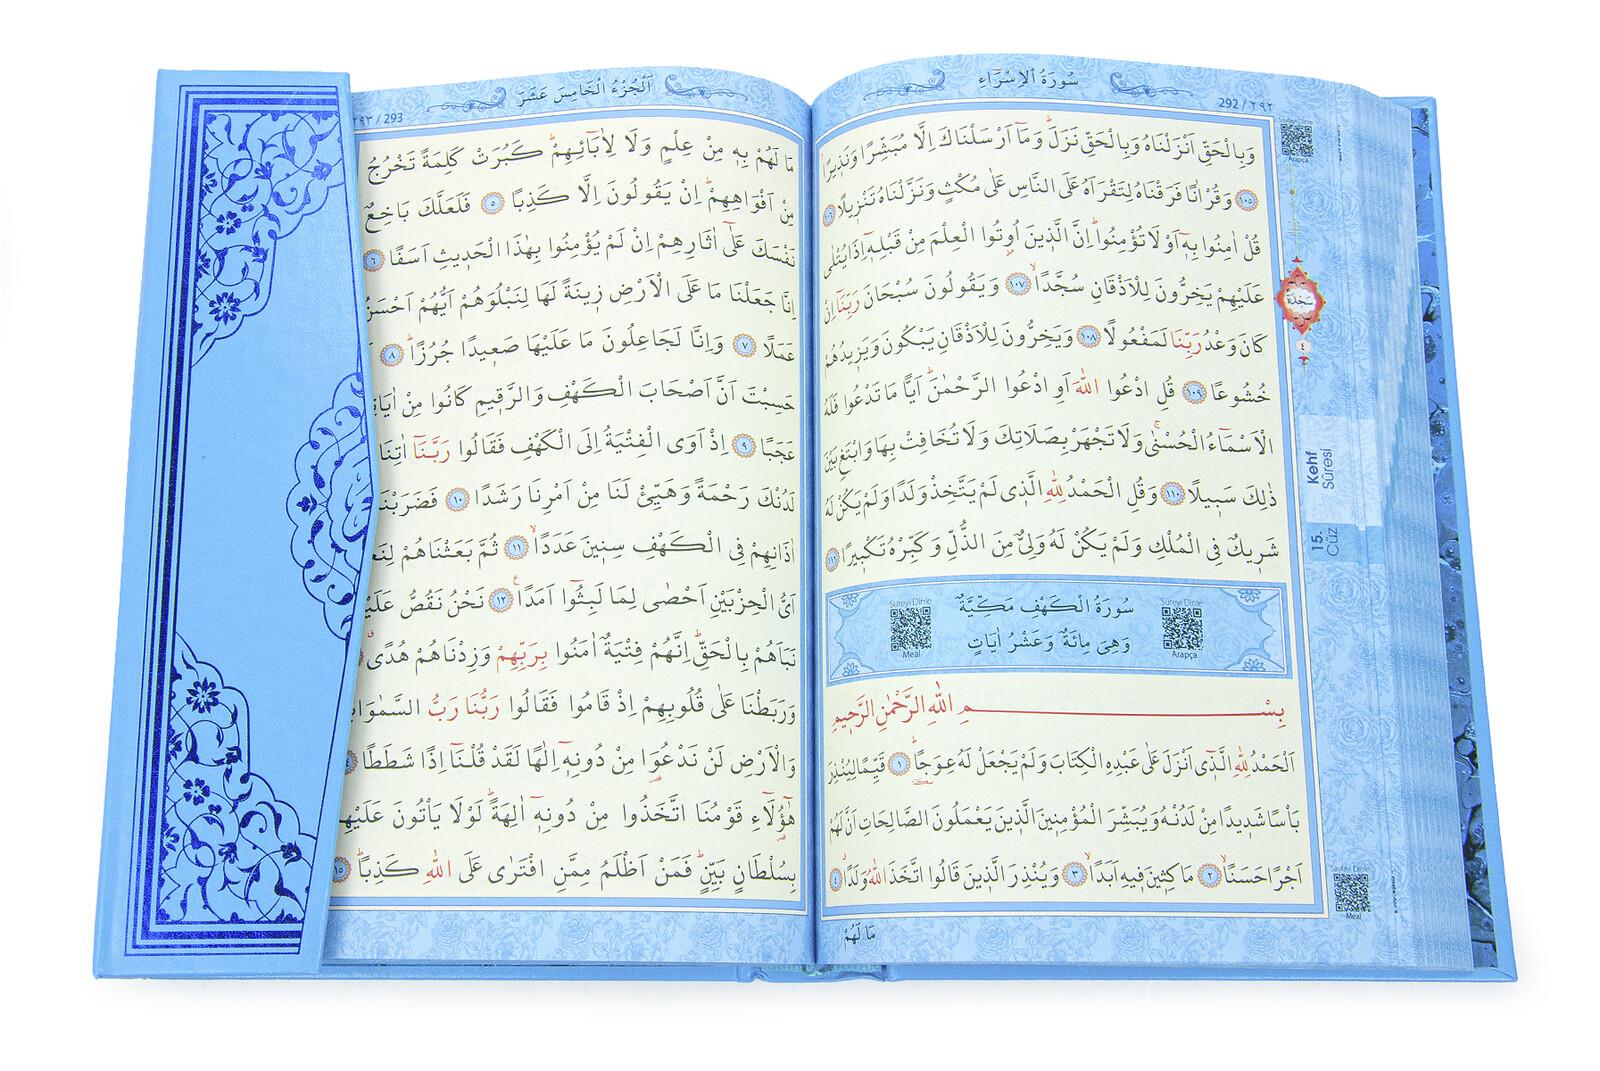 سُورَةُ الْاِسْرَاءِ
292 / ٢٩٢
وَبِالْحَقِّ اَنْزَلْنَاهُ وَبِالْحَقِّ نَزَلَ وَمَٓا اَرْسَلْنَاكَ اِلَّا مُبَشِّرًا وَنَذِيرًا
١٠٥ وَقُرْاٰنًا فَرَقْنَاهُ لِتَقْرَاَهُ عَلَى النَّاسِ عَلٰى مُكْثٍ وَنَزَّلْنَاهُ تَنْزِيلًا ١٠٦
قُلْ اٰمِنُوا بِهٖٓ اَوْ لَا تُؤْمِنُوا اِنَّ الَّذِينَ اُوتُوا الْعِلْمَ مِنْ قَبْلِهٖٓ اِذَا يُتْلٰى
عَلَيْهِمْ يَخِرُّونَ لِلْاَذْقَانِ سُجَّدًا ١٠٧ وَيَقُولُونَ سُبْحَانَ رَبِّنَٓا اِنْ
كَانَ وَعْدُ رَبِّنَا لَمَفْعُولًا ١٠٨ وَيَخِرُّونَ لِلْاَذْقَانِ يَبْكُونَ وَيَزِيدُهُمْ
خُشُوعًا ١٠٩ قُلِ ادْعُوا اللّٰهَ اَوِ ادْعُوا الرَّحْمٰنَ اَيًّا مَا تَدْعُوا فَلَهُ
الْاَسْمَٓاءُ الْحُسْنٰى وَلَا تَجْهَرْ بِصَلَاتِكَ وَلَا تُخَافِتْ بِهَا وَابْتَغِ بَيْنَ
ذٰلِكَ سَبِيلًا ١١٠ وَقُلِ الْحَمْدُ لِلّٰهِ الَّذِى لَمْ يَتَّخِذْ وَلَدًا وَلَمْ يَكُنْ لَهُ
شَرِيكٌ فِى الْمُلْكِ وَلَمْ يَكُنْ لَهُ وَلِىٌّ مِنَ الذُّلِّ وَكَبِّرْهُ تَكْبِيرًا ١١١
سُورَةُ الْكَهْفِ مَكِّيَّةٌ
وَهِىَ مِائَةٌ وَعَشْرُ اٰيَاتٍ
Sureyi Dinle
Arapça
Sureyi Dinle
Meal
بِسْمِ اللّٰهِ الرَّحْمٰنِ الرَّحِيمِ
اَلْحَمْدُ لِلّٰهِ الَّذِٓى اَنْزَلَ عَلٰى عَبْدِهِ الْكِتَابَ وَلَمْ يَجْعَلْ لَهُ عِوَجًا ١ قَيِّمًا لِيُنْذِرَ
بَاْسًا شَدِيدًا مِنْ لَدُنْهُ وَيُبَشِّرَ الْمُؤْمِنِينَ الَّذِينَ يَعْمَلُونَ الصَّالِحَاتِ اَنَّ لَهُمْ
اَجْرًا حَسَنًا ٢ مَاكِثِينَ فِيهِ اَبَدًا ٣ وَيُنْذِرَ الَّذِينَ قَالُوا اتَّخَذَ اللّٰهُ وَلَدًا ٤
مَا لَهُمْ
Sayfayı Dinle
Arapça
سَجْدَة
٤
Kehf
Sûresi
15.
Cüz
Sayfayı Dinle
Meal
اَلْجُزْءُ الْخَامِسَ عَشَرَ
٢٩٣ / 293
مَا لَهُمْ بِهٖ مِنْ عِلْمٍ وَلَا لِاٰبَٓائِهِمْ كَبُرَتْ كَلِمَةً تَخْرُجُ
مِنْ اَفْوَاهِهِمْ اِنْ يَقُولُونَ اِلَّا كَذِبًا ٥ فَلَعَلَّكَ بَاخِعٌ
نَفْسَكَ عَلٰٓى اٰثَارِهِمْ اِنْ لَمْ يُؤْمِنُوا بِهٰذَا الْحَدِيثِ اَسَفًا ٦
اِنَّا جَعَلْنَا مَا عَلَى الْاَرْضِ زِينَةً لَهَا لِنَبْلُوَهُمْ اَيُّهُمْ اَحْسَنُ
عَمَلًا ٧ وَاِنَّا لَجَاعِلُونَ مَا عَلَيْهَا صَعِيدًا جُرُزًا ٨
حَسِبْتَ اَنَّ اَصْحَابَ الْكَهْفِ وَالرَّقِيمِ كَانُوا مِنْ اٰيَاتِ
عَجَبًا ٩ اِذْ اَوَى الْفِتْيَةُ اِلَى الْكَهْفِ فَقَالُوا رَبَّنَٓا اٰتِنَا
لَدُنْكَ رَحْمَةً وَهَيِّئْ لَنَا مِنْ اَمْرِنَا رَشَدًا ١٠ فَضَرَبْنَا
اٰذَانِهِمْ فِى الْكَهْفِ سِنِينَ عَدَدًا ١١ ثُمَّ بَعَثْنَاهُمْ لِنَعْ
اَىُّ الْحِزْبَيْنِ اَحْصٰى لِمَا لَبِثُٓوا اَمَدًا ١٢ نَحْنُ نَقُصُّ عَلَيْ
نَبَاَهُمْ بِالْحَقِّ اِنَّهُمْ فِتْيَةٌ اٰمَنُوا بِرَبِّهِمْ وَزِدْنَاهُمْ هُدًى
وَرَبَطْنَا عَلٰى قُلُوبِهِمْ اِذْ قَامُوا فَقَالُوا رَبُّنَا رَبُّ السَّمٰوَاتِ
وَالْاَرْضِ لَنْ نَدْعُوَا مِنْ دُونِهٖٓ اِلٰهًا لَقَدْ قُلْنَٓا اِذًا شَطَطًا
هٰٓؤُلَٓاءِ قَوْمُنَا اتَّخَذُوا مِنْ دُونِهٖٓ اٰلِهَةً لَوْلَا يَاْتُونَ عَلَيْهِ
بِسُلْطَانٍ بَيِّنٍ فَمَنْ اَظْلَمُ مِمَّنِ افْتَرٰى عَلَى اللّٰهِ كَذِبًا ١٥